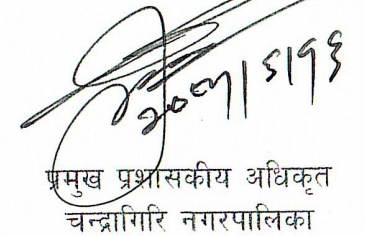 २०७१|६|१६
प्रमुख प्रशासकीय अधिकृत
चन्द्रागिरि नगरपालिका